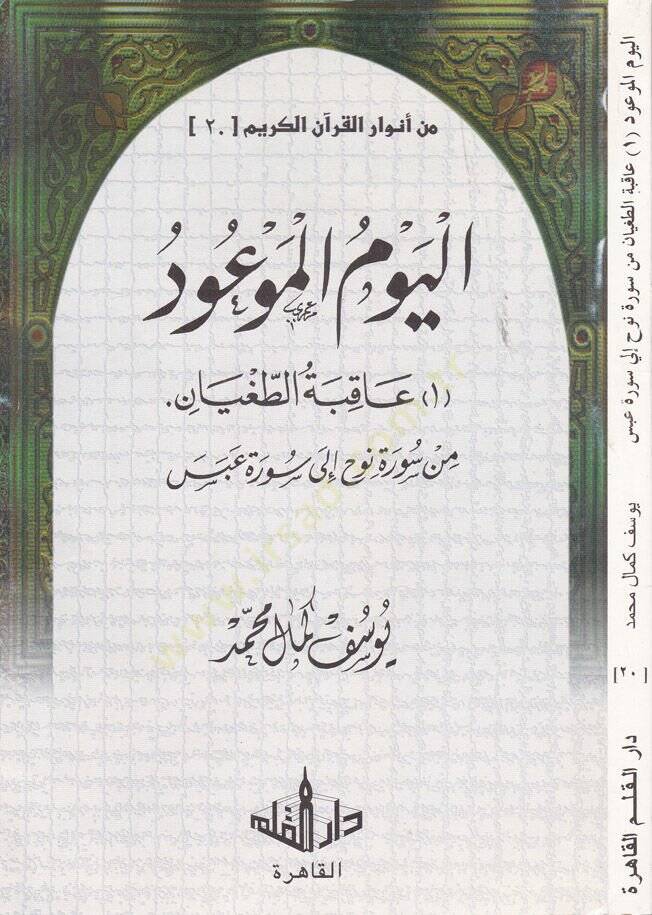 من أنوار القرآن الكريم [٢٠]
اليَوْمُ الْمَوْعُودُ
(١) عَاقِبَةُ الطُّغْيَانِ.
مِنْ سُورَة نُوح إلَى سُورَة عَبَسَ
يُوسُفْ كَمَال مُحَمَّدْ
دار القلم
القاهرة
اليوم الموعود (١) عاقبة الطغيان من سورة نوح إلي سورة عبس
يوسف كمال محمد
[٢٠]
دار القلم القاهرة